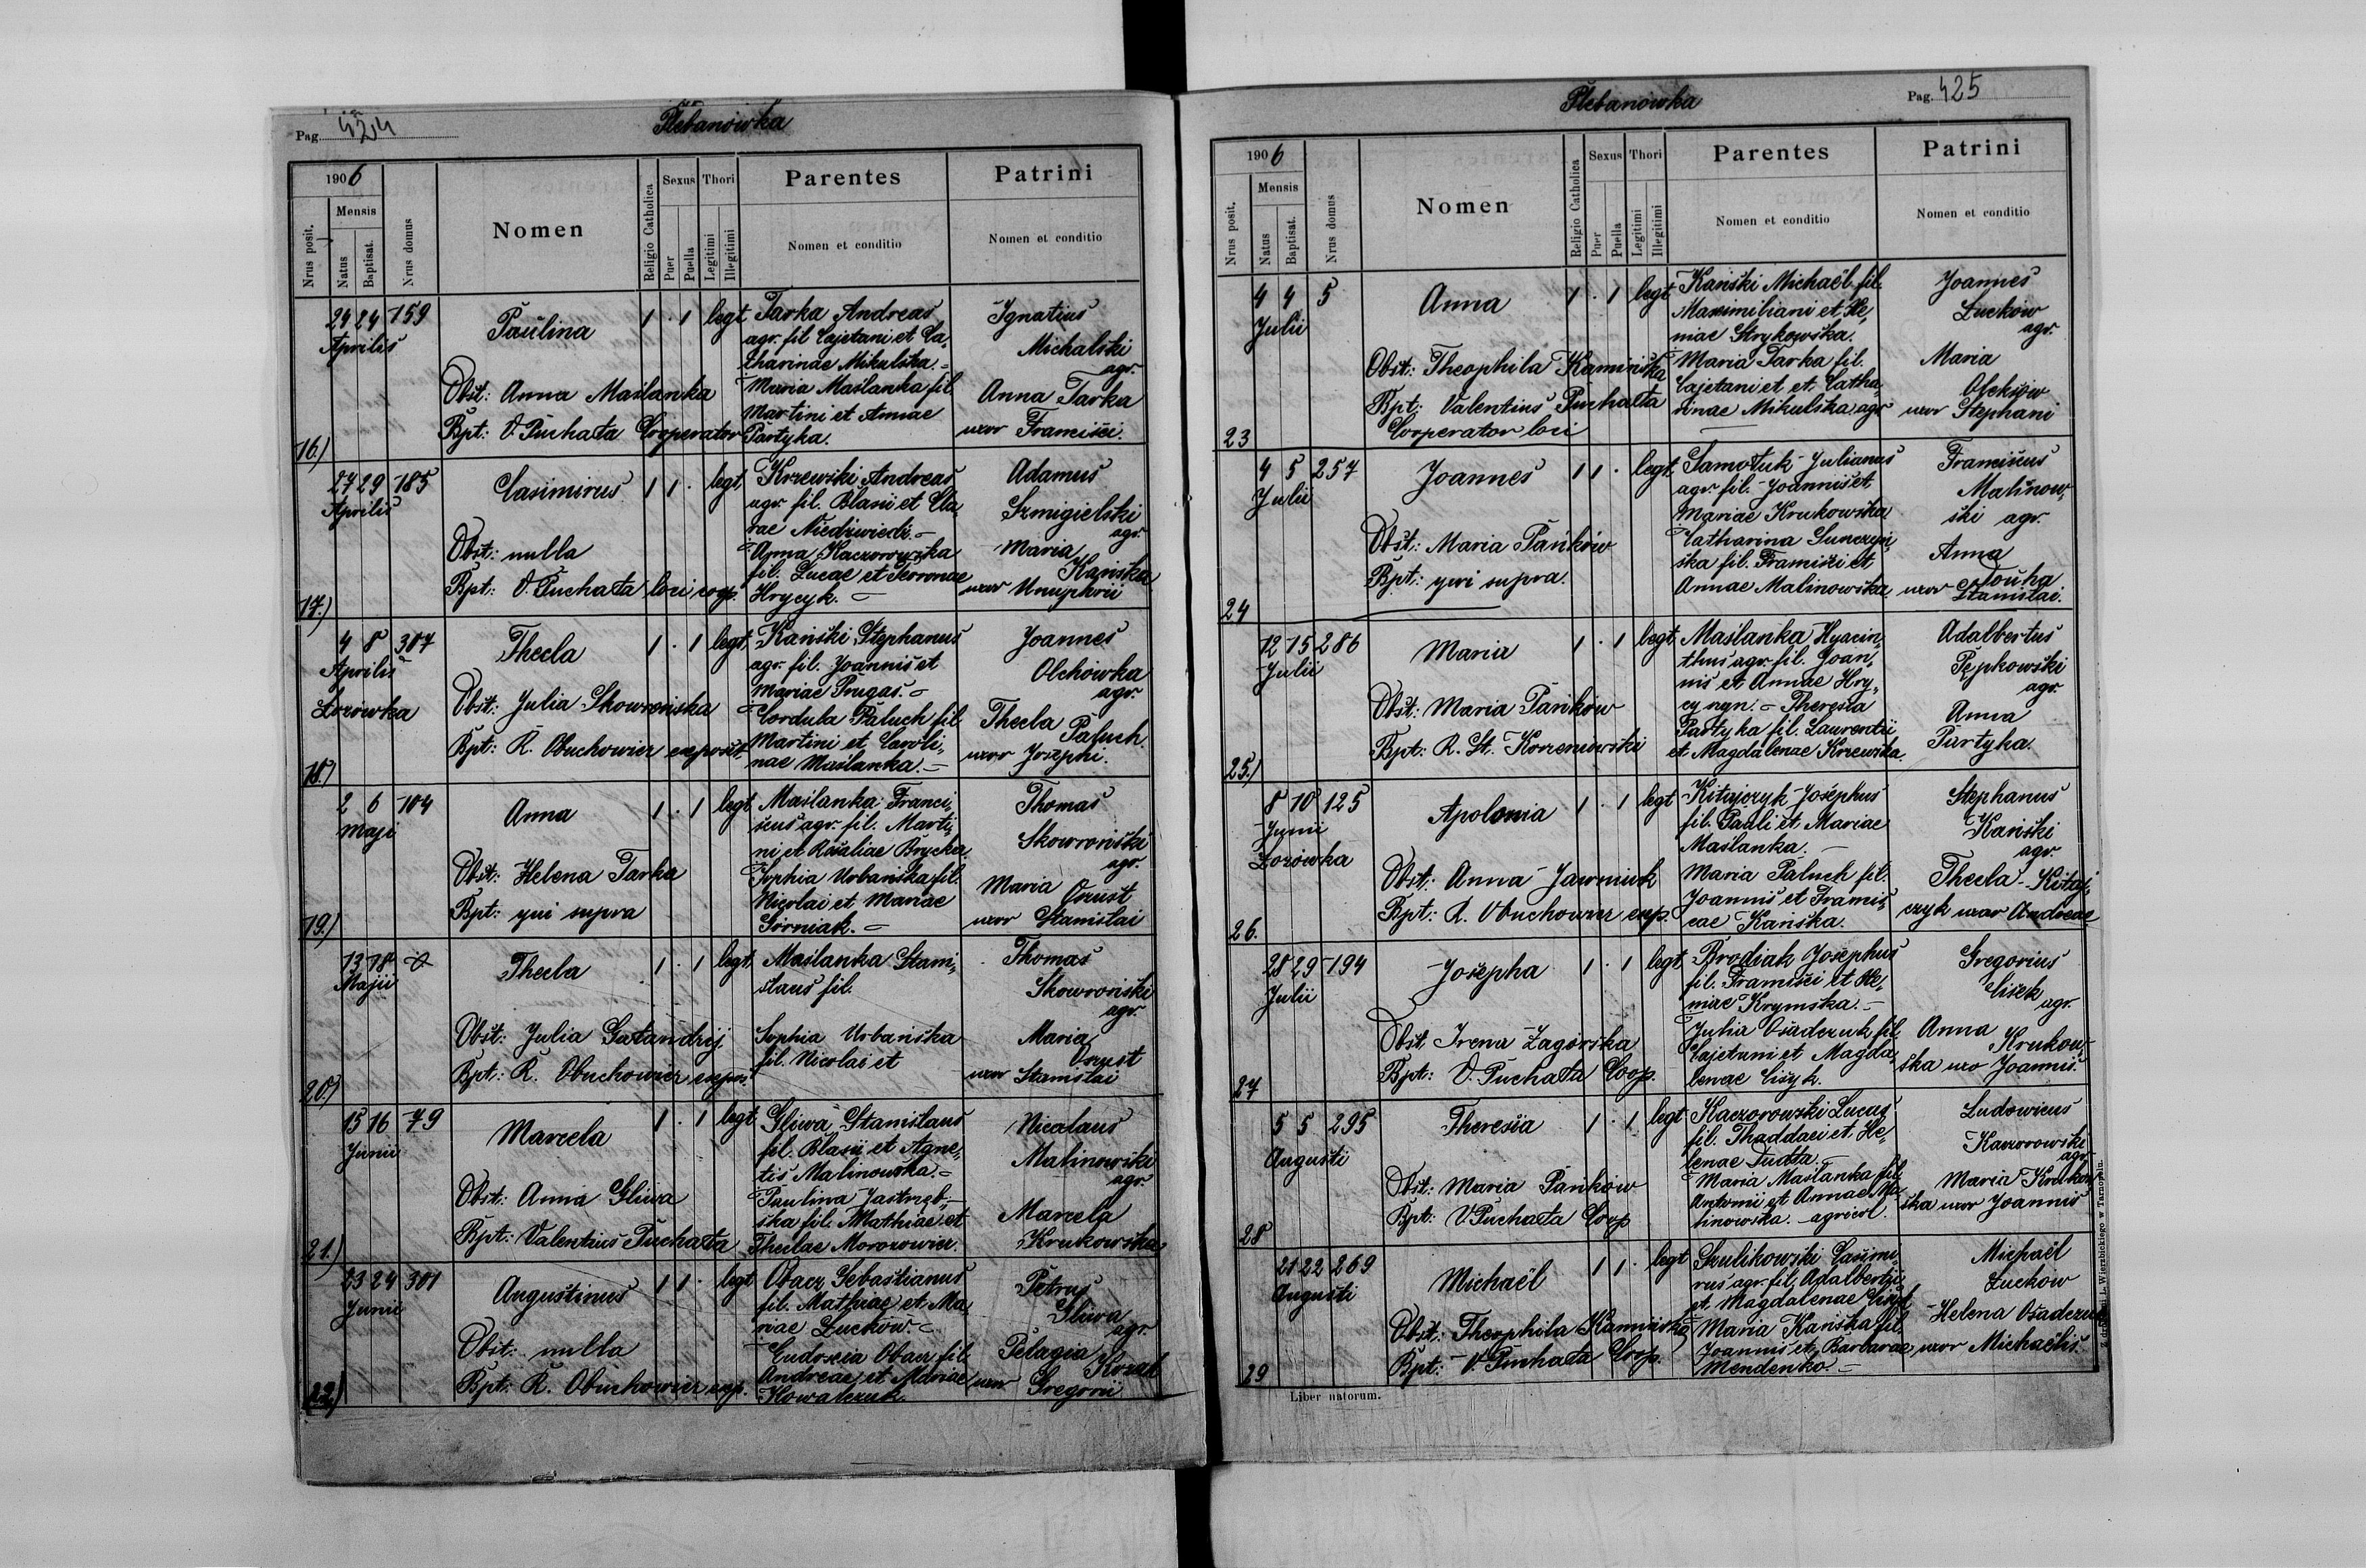 Pag. 424
Plebanówka
1906
Nrus posit.
Mensis
Natus
Baptisat.
Nrus domus
Nomen
Religio Catholica
Sexus
Puer
Puella
Thori
Legitimi
Illegitimi
Parentes
Nomen et conditio
Patrini
Nomen et conditio
16.)
24 24 159
Aprilis
Paulina
1 . 1 legt
Obst: Anna Maślanka
Bpt: V. Puchała Cooperator
Tarka Andreas
agr. fil Cajetani et Ca-
tharinae Mikulska. -
Maria Maślanka fil.
Martini et Annae
Partyka.
Ignatius
Michalski
agr.
Anna Tarka
uxor Francisci.
17.)
27 29 185
Aprilis
Casimirus
1 1 . legt.
Obst: nulla
Bpt: V. Puchała loci coop.
Krzewski Andreas
agr. fil. Blasii et Cla-
rae Niedźwiedź. -
Anna Kaczorowska
fil. Lucae et
Hrycyk. -
Adamus
Szmigielski
agr.
Maria
Kańska
uxor Onuphrii
18.)
4 8 307
Aprilis
Łozówka
Thecla
1 . 1 legt.
Obst: Julia Skowrońska
Bpt: R. Obuchowicz exposit.
Kański Stephanus
agr. fil. Joannis et
Mariae Prugas. -
Cordula Paluch fil.
Martini et Caroli-
nae Maślanka. -
Joannes
Olchówka
agr.
Thecla
Paluch
uxor Josephi.
19.)
2 6 104
Maji
Anna
1 . 1 legt
Obst: Helena Tarka
Bpt: qui supra
Maślanka Franci-
scus agr. fil. Marti-
ni et Rosaliae Brycka.
Sophia Urbańska fil.
Nicolai et Mariae
Górniak. -
Thomas
Skowroński
agr.
Maria
Orust
uxor Stanislai
20.)
13 18
Majii
Thecla
1 . 1 legt.
Obst: Julia Gałandzij
Bpt: R. Obuchowicz expos.
Maślanka Stani-
slaus fil.
Sophia Urbańska
fil. Nicolai et
Thomas
Skowroński
agr.
Maria
Orust
uxor Stanislai
21.)
15 16 79
Junii
Marcela
1 . 1 legt
Obst: Anna Gliwa
Bpt: Valentius Puchała
Gliwa Stanislaus
fil. Blasii et Agne-
tis Malinowska -
Paulina Jastrzęb-
ska fil. Mathiae et
Theclae Morozowicz.
Nicolaus
Malinowski
agr.
Marcela
Krukowska
22.)
23 24 301
Junii
Augustinus
1 1 . legt
Obst: nulla
Bpt: R. Obuchowicz exp.
Obacz Sebastianus
fil. Mathiae et Ma-
riae Łucków. -
Eudoxia Obacz fil.
Andreae et Mariae
Kowalczuk.
Petrus
Gliwa
agr.
Pelagia
Kozak
uxor Gregorii
Plebanówka
Pag. 425
1906
Nrus posit.
Mensis
Natus
Baptisat.
Nrus domus
Nomen
Religio Catholica
Sexus
Puer
Puella
Thori
Legitimi
Illegitimi
Parentes
Nomen et conditio
Patrini
Nomen et conditio
23
4 4 5
Julii
Anna
1 . 1 legt
Obst: Theophila Kamińska
Bpt: Valentius Puchała
Cooperator loci
Kański Michaël fil.
Maximiliani et
niae Strykowska.
Maria Tarka fil.
Cajetani et et Catha-
rinae Mikulska agr
Joannes
Łucków
agr.
Maria
Oleksiów
uxor Stephani
24
4 5 257
Julii
Joannes
1 1 . legt.
Obst: Maria Pańków
Bpt: qui supra.
Samołuk Julianus
agr. fil. Joannis et
Mariae Krukowska
Catharina
ska fil. Francisci et
Annae Malinowska.
Franciscus
Malinow-
ski agr.
Anna
uxor Stanislai.
25.)
12 15 286
Julii
Maria
1 . 1 legt.
Obst: Maria Pańków
Bpt: R. St. Korzeniowski
Maślanka Hyacin-
thus agr. fil. Joan-
nis et Annae Hry-
cynyn. - Theresia
Partyka fil. Laurentii
et Magdalenae Krzewska.
Adalbertus
Pępkowski
agr.
Anna
Partyka.
26.
8 10 125
Junii
Łozówka
Apolonia
1 . 1 legt
Obst: Anna Jawniuk
Bpt: R. Obuchowicz exp.
Kitajczyk Josephus
fil. Pauli et Mariae
Maślanka. -
Maria Paluch fil
Joannis et Francis-
cae Kańska.
Stephanus
Kański
agr.
Thecla Kitaj-
czyk uxor Andreae
27
28 29 194
Julii
Josepha
1 . 1 legt
Obst. Irena Zagórska
Bpt: V. Puchała Coop.
Brodiak Josephus
fil. Francisci et
niae Krymska. -
Julia Osadczuk fil.
Cajetani et Magda-
lenae Cisyk.
Gregorius
Cisek
agr.
Anna
Krukow-
ska uxo Joannis.
28
5 5 295
Augusti
Theresia
1 . 1 legt
Obst: Maria Pańków
Bpt: V. Puchała Coop
Kaczorowski Lucas
fil. Thaddaei et He-
lenae Dudta. -
Maria Maślanka fil.
Antonii et Annae Ma-
linowska. - agricol.
Ludovicus
Kaczorowski
agr.
Maria Krukow-
ska uxor Joannis
29
21 22 269
Augusti
Michaël
1 1 . legt
Obst: Theophila Kamińska
Bpt: V. Puchała Coop.
Szulikowski Casimi-
rus agr. fil. Adalberti
et Magdalenae Cisek
Maria Kańska fil.
Joannis et Barbarae
Mendenko. -
Michaël
Łucków
Helena Osadczuk
uxor Michaëlis.
Liber natorum.
Z drukarni L. Wierzbickiego w Tarnopolu.